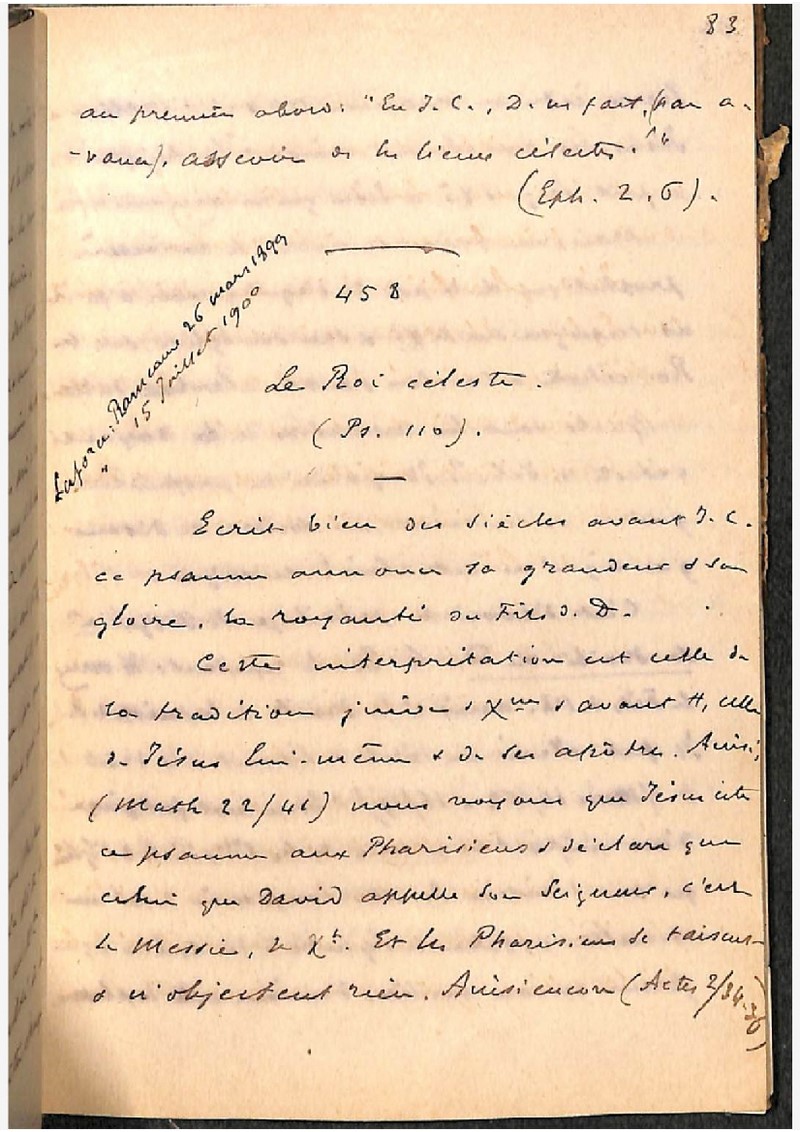 83
au premier abord : "En J. C., D. ns fait, (par a-
-vance), asseoir ds les lieux célestes."
(Eph. 2, 6).
Laforce : Rameaux 26 mars 1899
" 15 Juillet 1900
458
Le Roi céleste.
(Ps. 110).
Ecrit bien des siècles avant J. C.
ce psaume annonce sa grandeur & sa
gloire, la royauté du Fils d. D.
Cette interprétation est celle de
la tradition juive & Xne & avant tt, celle
de Jésus lui-même & de ses apôtres. Ainsi,
(Math 22/41) nous voyons que Jésus cite
ce psaume aux Pharisiens & déclare que
celui que David appelle son Seigneur, c'est
le Messie, le Xt. Et les Pharisiens se taisent
& n'objectent rien. Ainsi encore (Actes 2/34-36)